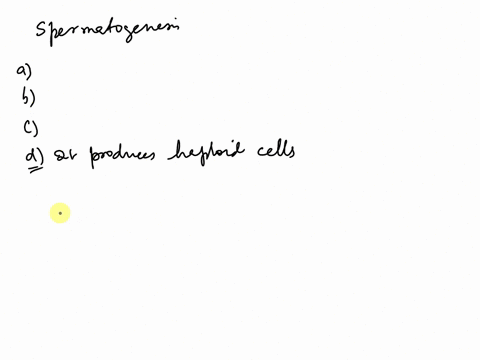 Spermatogenesis
a)
b)
c)
d) It produces haploid cells